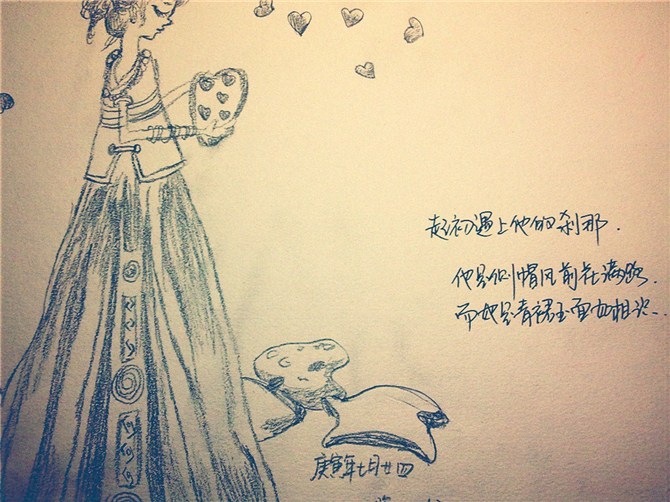 起初遇上他的刹那.
他是侧帽风前花满路.
而她是青裙玉面如相识..
庚寅年七月廿四